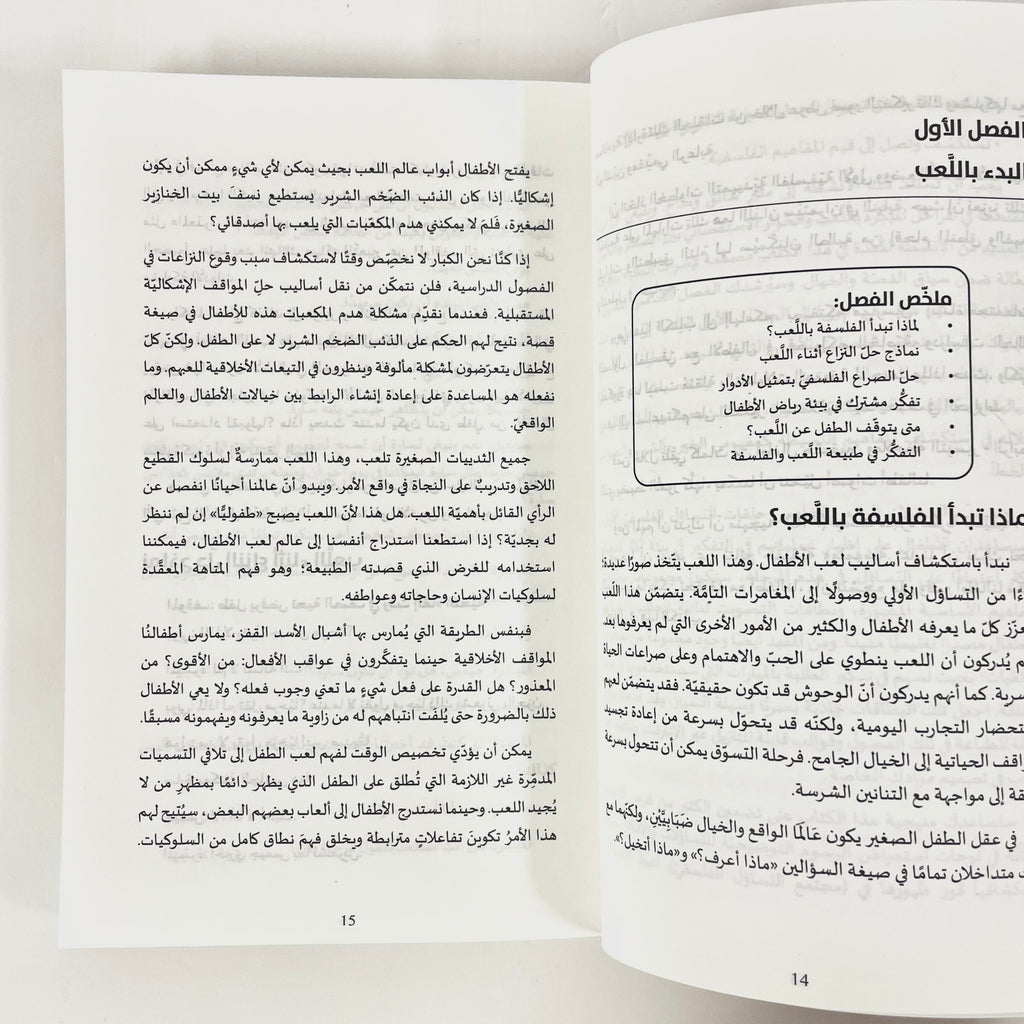 الفصل الأول
البدء باللَّعب
ملخّص الفصل:
• لماذا تبدأ الفلسفة باللَّعب؟
• نماذج حلّ النزاع أثناء اللَّعب
• حلّ الصراع الفلسفيّ بتمثيل الأدوار
• تفكُّر مشترك في بيئة رياض الأطفال
• متى يتوقّف الطفل عن اللَّعب؟
• التفكُّر في طبيعة اللَّعب والفلسفة
لماذا تبدأ الفلسفة باللَّعب؟
نبدأ باستكشاف أساليب لعب الأطفال. وهذا اللعب يتّخذ صورًا عديدة؛
من التساؤل الأولي ووصولًا إلى المغامرات التامَّة. يتضمّن هذا اللّعب
كلّ ما يعرفه الأطفال والكثير من الأمور الأخرى التي لم يعرفوها بعد.
يُدركون أن اللعب ينطوي على الحبّ والاهتمام وعلى صراعات الحياة
كما أنهم يدركون أنّ الوحوش قد تكون حقيقيّة. فقد يتضمّن لعبهم
التجارب اليومية، ولكنّه قد يتحوّل بسرعة من إعادة تجسيد
الحياتية إلى الخيال الجامح. فرحلة التسوّق يمكن أن تتحول بسرعة
إلى مواجهة مع التنانين الشرسة.
في عقل الطفل الصغير يكون عَالمَا الواقع والخيال ضَبَابِيَّيْنِ، ولكنّهما مع
متداخلان تمامًا في صيغة السؤالين «ماذا أعرف؟» و«ماذا أتخيل؟».
14
يفتح الأطفال أبواب عالم اللعب بحيث يمكن لأي شيءٍ ممكن أن يكون
إشكاليًّا. إذا كان الذئب الضّخم الشرير يستطيع نسفَ بيت الخنازير
الصغيرة، فَلمَ لا يمكنني هدم المكعّبات التي يلعب بها أصدقائي؟
إذا كنّا نحن الكبار لا نخصِّص وقتًا لاستكشاف سبب وقوع النزاعات في
الفصول الدراسية، فلن نتمكّن من نقل أساليب حلِّ المواقف الإشكاليّة
المستقبلية. فعندما نقدّم مشكلة هدم المكعبات هذه للأطفال في صيغة
قصة، نتيح لهم الحكم على الذئب الضخم الشرير لا على الطفل. ولكنّ كلّ
الأطفال يتعرّضون لمشكلة مألوفة وينظرون في التبعات الأخلاقية للعبهم. وما
نفعله هو المساعدة على إعادة إنشاء الرابط بين خيالات الأطفال والعالم
الواقعيّ.
جميع الثدييات الصغيرة تلعب، وهذا اللعب ممارسةٌ لسلوك القطيع
اللاحق وتدريبٌ على النجاة في واقع الأمر. ويبدو أنّ عالمنا أحيانًا انفصل عن
الرأي القائل بأهميّة اللعب. هل هذا لأنّ اللعب يصبح «طفوليًّا» إن لم ننظر
له بجديّة؟ إذا استطعنا استدراج أنفسنا إلى عالم لعب الأطفال، فيمكننا
استخدامه للغرض الذي قصدته الطبيعة؛ وهو فهم المتاهة المعقَّدة
لسلوكيات الإنسان وحاجاته وعواطفه.
فبنفس الطريقة التي يُمارس بها أشبال الأسد القفز، يمارس أطفالنُا
المواقف الأخلاقية حينما يتفكَّرون في عواقب الأفعال: من الأقوى؟ من
المعذور؟ هل القدرة على فعل شيءٍ ما تعني وجوب فعله؟ ولا يعي الأطفال
ذلك بالضرورة حتى يُلفَت انتباههم له من زاوية ما يعرفونه ويفهمونه مسبقًا.
يمكن أن يؤدّي تخصيص الوقت لفهم لعب الطفل إلى تلافي التسميات
المدمِّرة غير اللازمة التي تُطلق على الطفل الذي يظهر دائمًا بمظهرِ من لا
يُجيد اللعب. وحينما نستدرج الأطفال إلى ألعاب بعضهم البعض، سيُتيح لهم
هذا الأمرُ تكوينَ تفاعلاتٍ مترابطة ويخلق فهمَ نطاق كامل من السلوكيات.
15